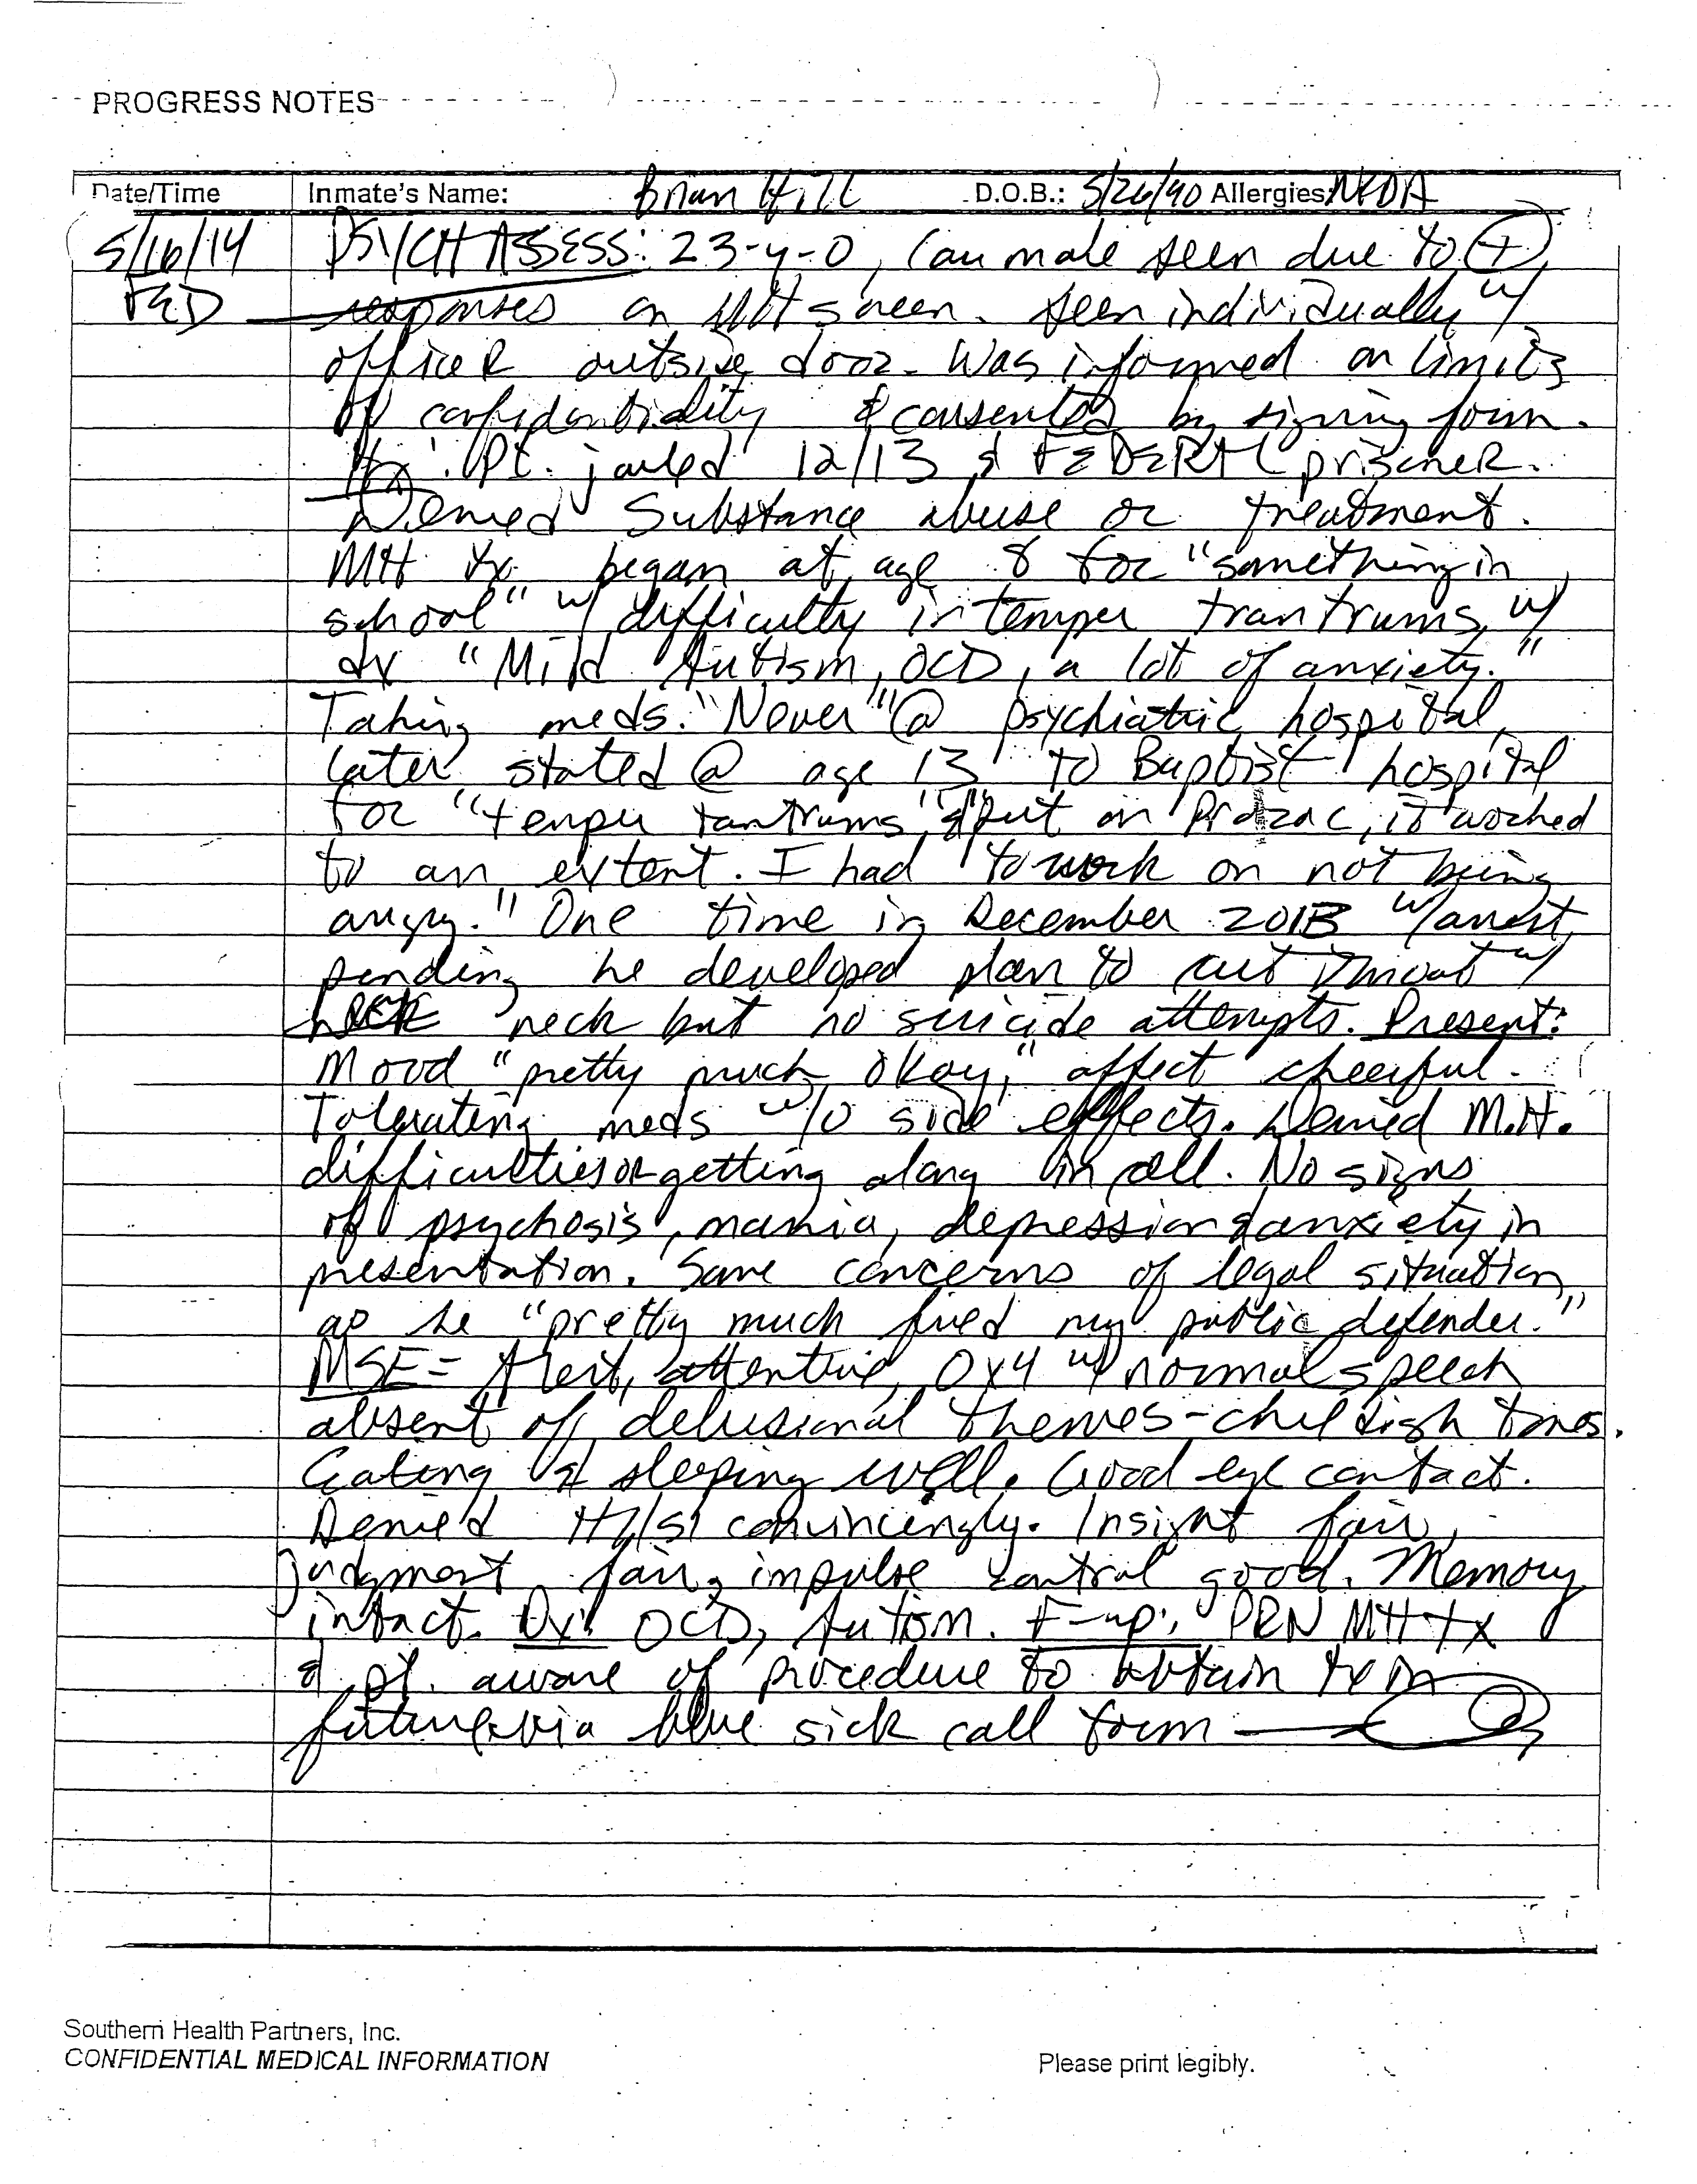 PROGRESS NOTES
Date/Time Inmate's Name: Brian Hill D.O.B.: 5/26/90 Allergies: NKDA
5/16/14 PSYCH ASSESS: 23-y-o, Cau male seen due to (+)
FED responses on MH screen. Seen individually w/
officer outside door. Was informed on limits
of confidentiality & consented by signing form.
Hx: Pt. jailed 12/13 & FEDERAL prisoner.
Denied Substance abuse or treatment.
MH tx. began at age 8 for "something in
school" w/ difficulty in temper trantrums, w/
dx "Mild Autism, OCD, a lot of anxiety."
Taking meds. "Never" @ psychiatric hospital,
later stated @ age 13 to Baptist hospital
for "temper tantrums," & "put on Prozac, it worked
to an extent. I had to work on not being
angry." One time in December 2013 w/ arrest
pending he developed plan to cut throat w/
neck but no suicide attempts. Present:
Mood "pretty much okay," affect cheerful.
Tolerating meds w/o side effects. Denied M.H.
difficulties or getting along in cell. No signs
of psychosis, mania, depression & anxiety in
presentation. Some concerns of legal situation,
as he "pretty much fired my public defender."
MSE = Alert, attentive, Ox4 w/ normal speech
absent of delusional themes - childish tones.
Eating & sleeping well. Good eye contact.
Denied HI/SI convincingly. Insight fair,
judgment fair, impulse control good. Memory
intact. Dx: OCD, Autism. F-up: PRN MH tx
& pt. aware of procedure to obtain tx in
future via blue sick call form
Southern Health Partners, Inc.
CONFIDENTIAL MEDICAL INFORMATION Please print legibly.